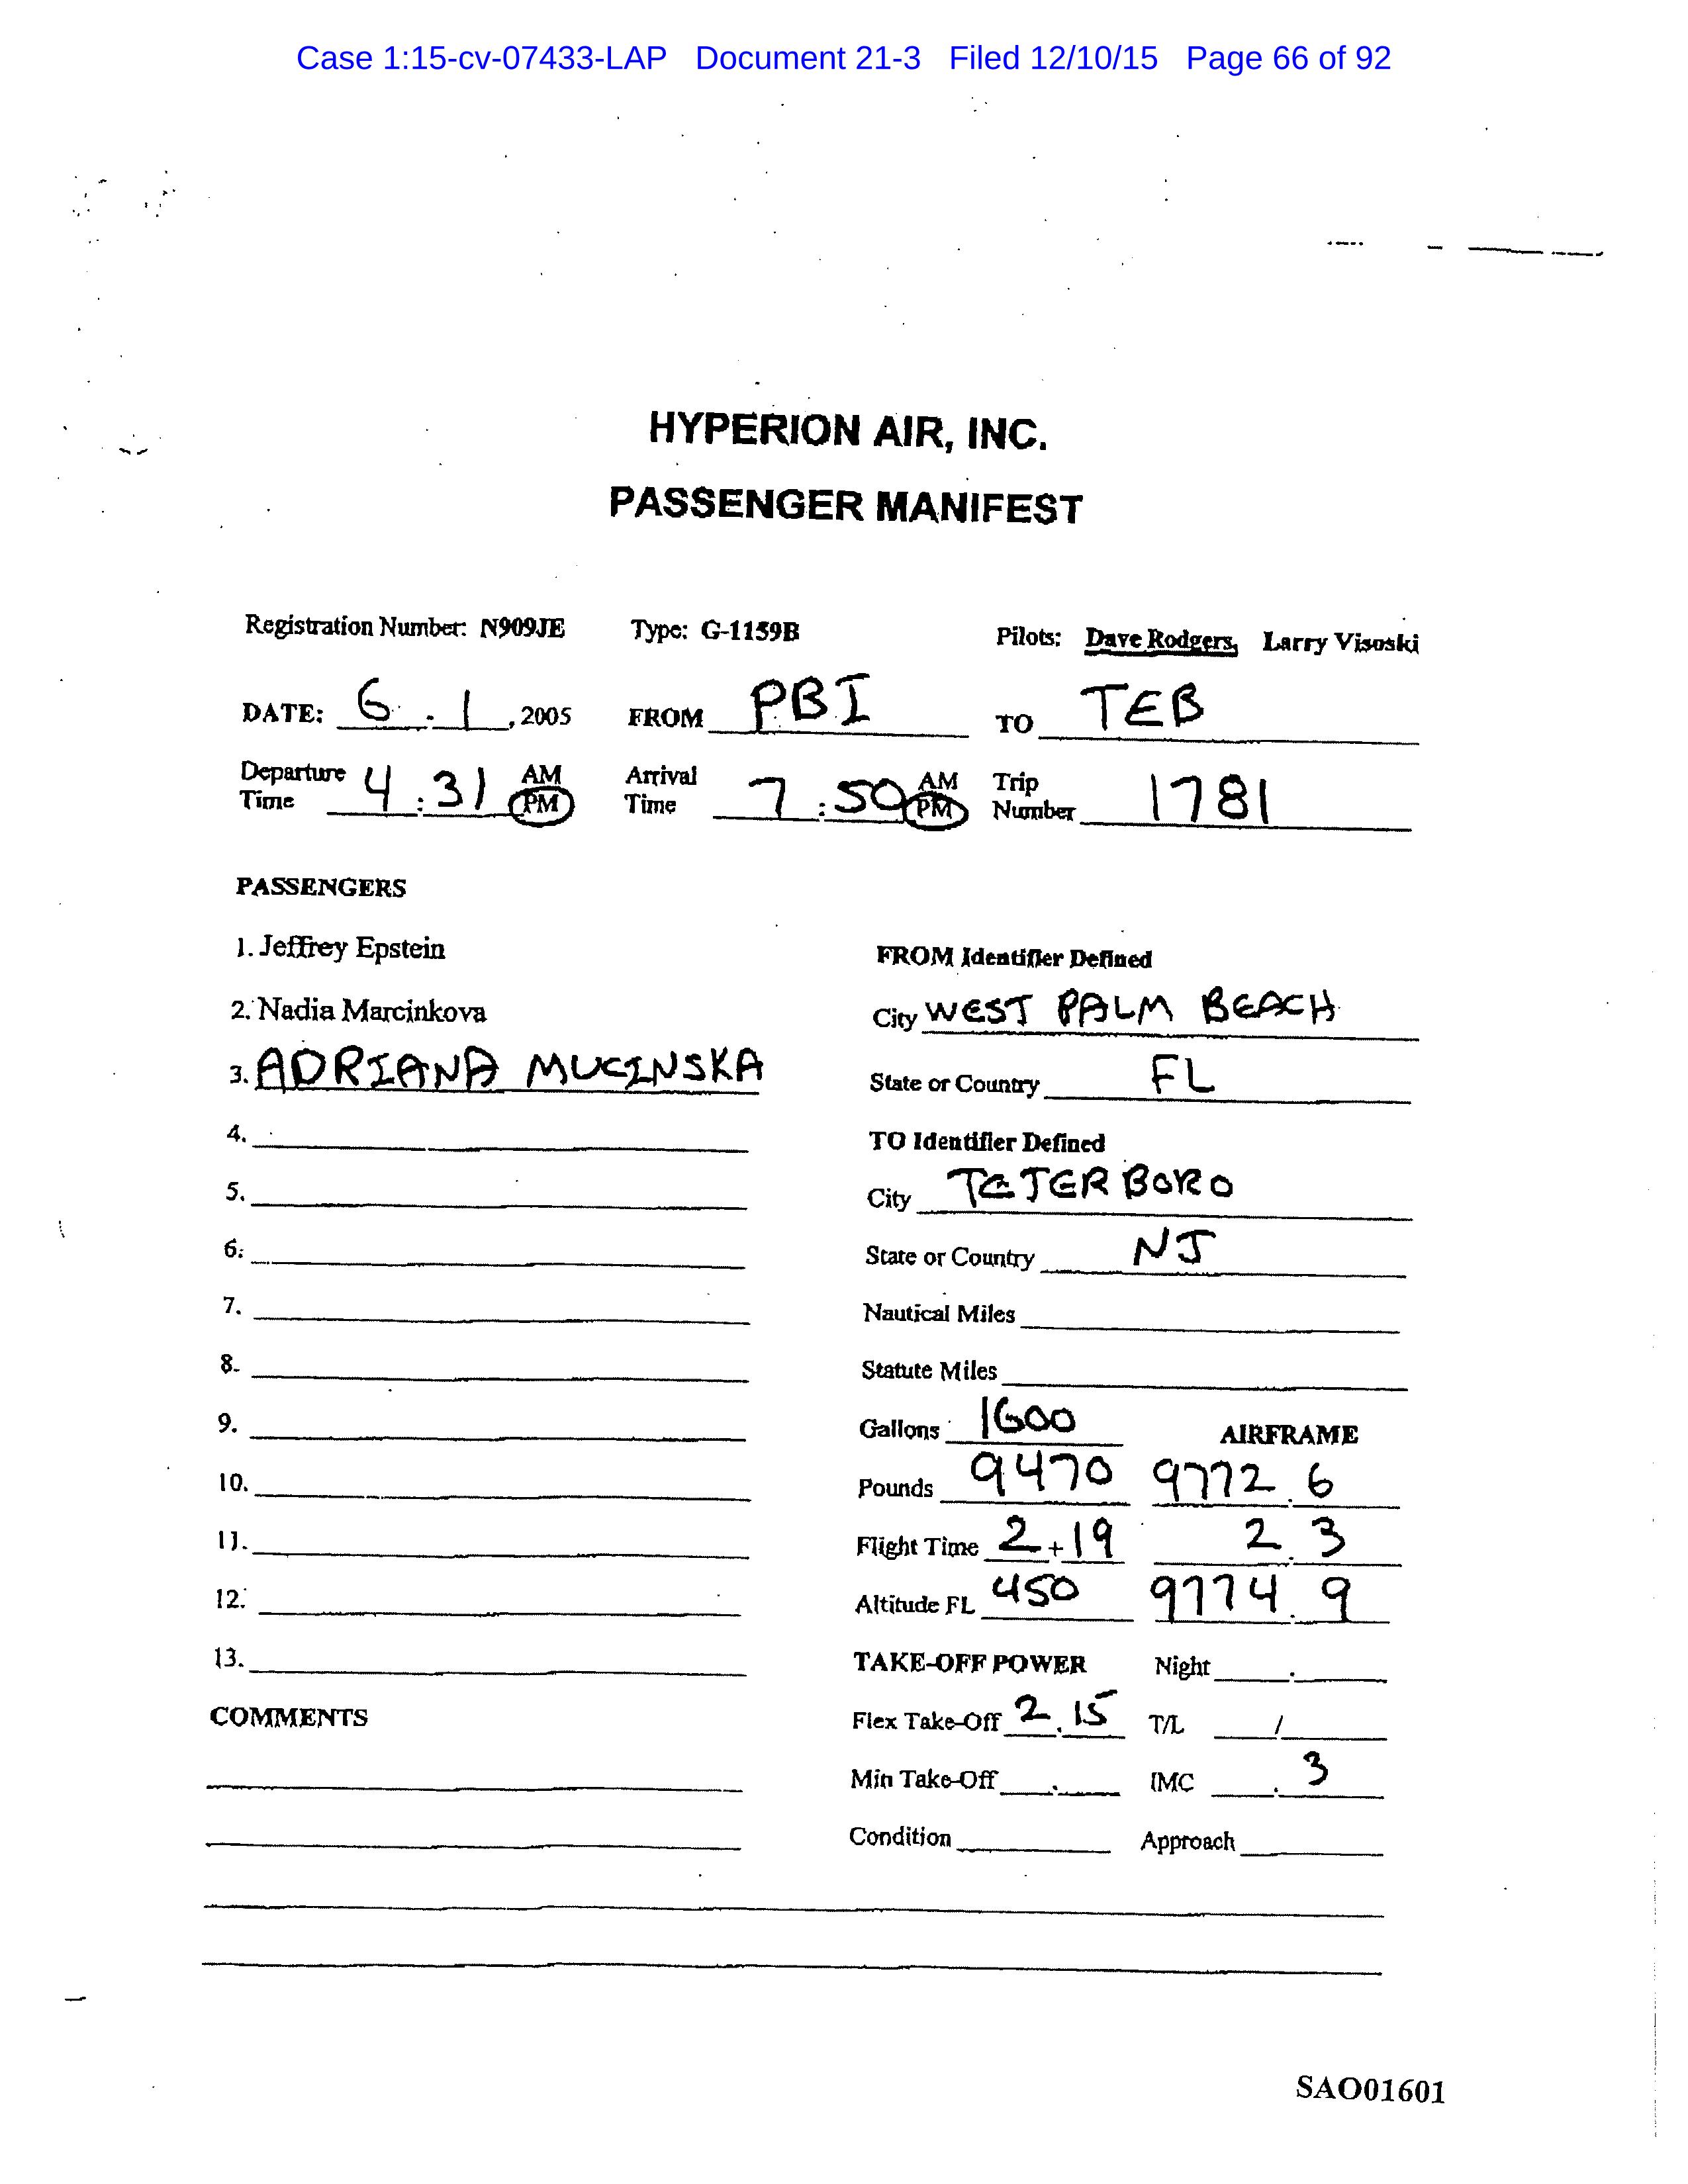 Case 1:15-cv-07433-LAP Document 21-3 Filed 12/10/15 Page 66 of 92
HYPERION AIR, INC.
PASSENGER MANIFEST
Registration Number: N909JE Type: G-1159B Pilots: Dave Rodgers, Larry Visoski
DATE: 6 . 1 , 2005 FROM PBI TO TEB
Departure Time 4 : 31 AM PM Arrival Time 7 : 50 AM PM Trip Number 1781
PASSENGERS
1. Jeffrey Epstein
2. Nadia Marcinkova
3. ADRIANA MUCINSKA
4.
5.
6.
7.
8.
9.
10.
11.
12.
13.
COMMENTS
FROM Identifier Defined
City WEST PALM BEACH
State or Country FL
TO Identifier Defined
City TETERBORO
State or Country NJ
Nautical Miles
Statute Miles
Gallons 1600 AIRFRAME
Pounds 9470 9772.6
Flight Time 2+19 2.3
Altitude FL 450 9774.9
TAKE-OFF POWER Night .
Flex Take-Off 2.15 T/L /
Min Take-Off . IMC .3
Condition Approach
SAO01601